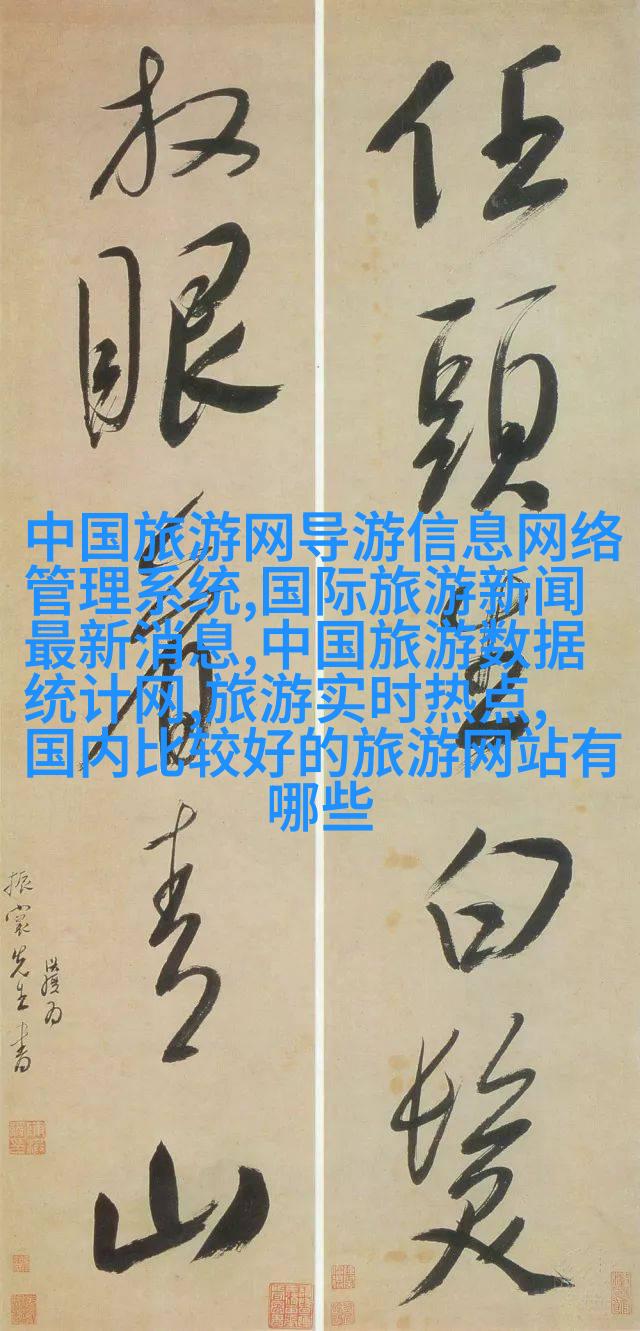 中国旅游网导游信息网络
管理系统,国际旅游新闻
最新消息,中国旅游数据
统计网,旅游实时热点,
国内比较好的旅游网站有
哪些
任頭生白髮
放眼看青山
振裳先生書